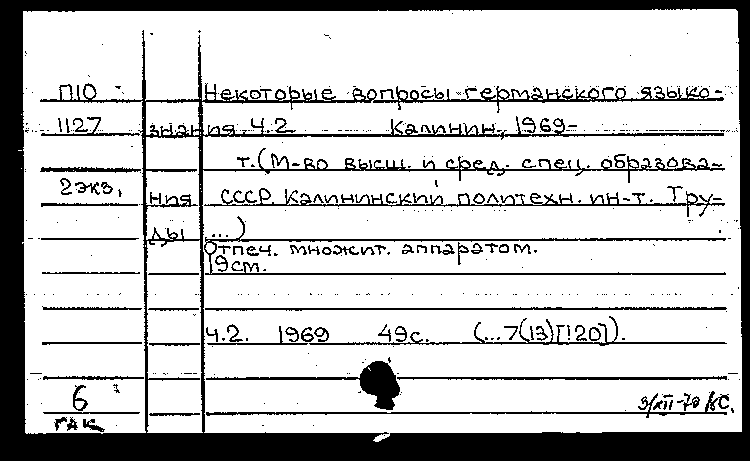 П10 Некоторые вопросы германского языко-
1127 знания. Ч.2 Калинин, 1969-
т. (М-во высш. и сред. спец. образова-
2 экз. ния СССР. Калининский политехн. ин-т. Тру-
ды ...)
Отпеч. множит. аппаратом.
19см.
Ч.2. 1969 49с. (...7(13)[120]).
6
ГАК 3/XII-70